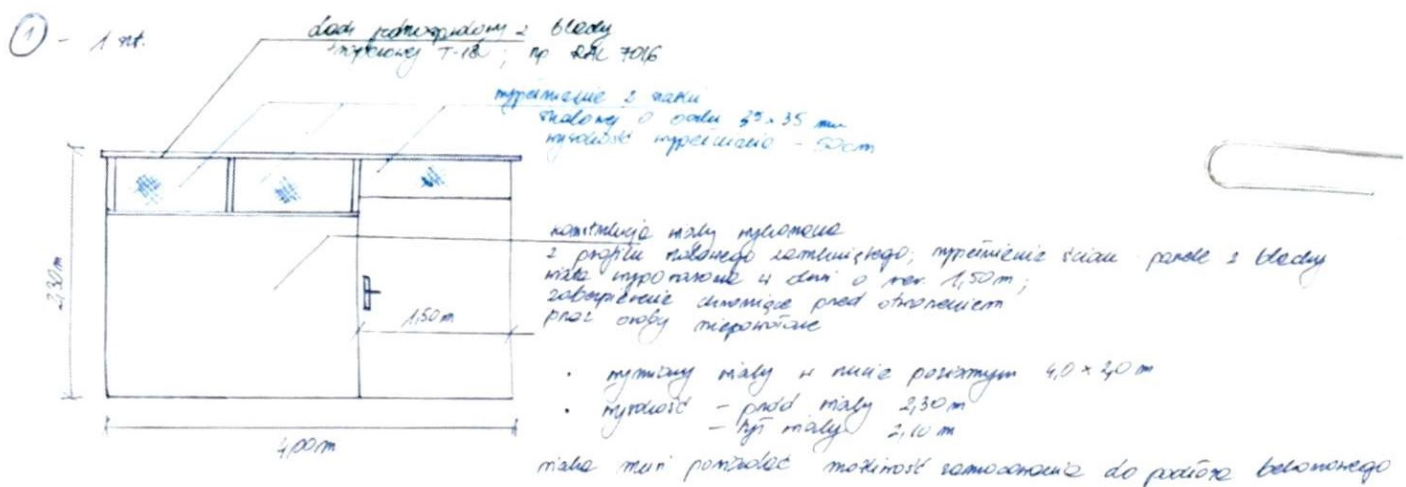 ① - 1 szt.
dach jednospadowy z blachy
trapezowej T-18 ; np RAL 7016
wypełnienie z siatki
stalowej o oczku 35 x 35 mm
wysokość wypełnienia - 50cm
konstrukcja wiaty wykonana
z profilu stalowego zamkniętego; wypełnienie ścian panele z blachy
wiata wyposażona w drzwi o szer. 1,50m ;
zabezpieczenie chroniące przed otworzeniem
przez osoby niepowołane
2,30m
1,50m
4,00m
· wymiary wiaty w rzucie poziomym 4,0 x 2,0 m
· wysokość - przód wiaty 2,30m
- tył wiaty 2,10m
wiata musi posiadać możliwość zamocowania do podłoża betonowego